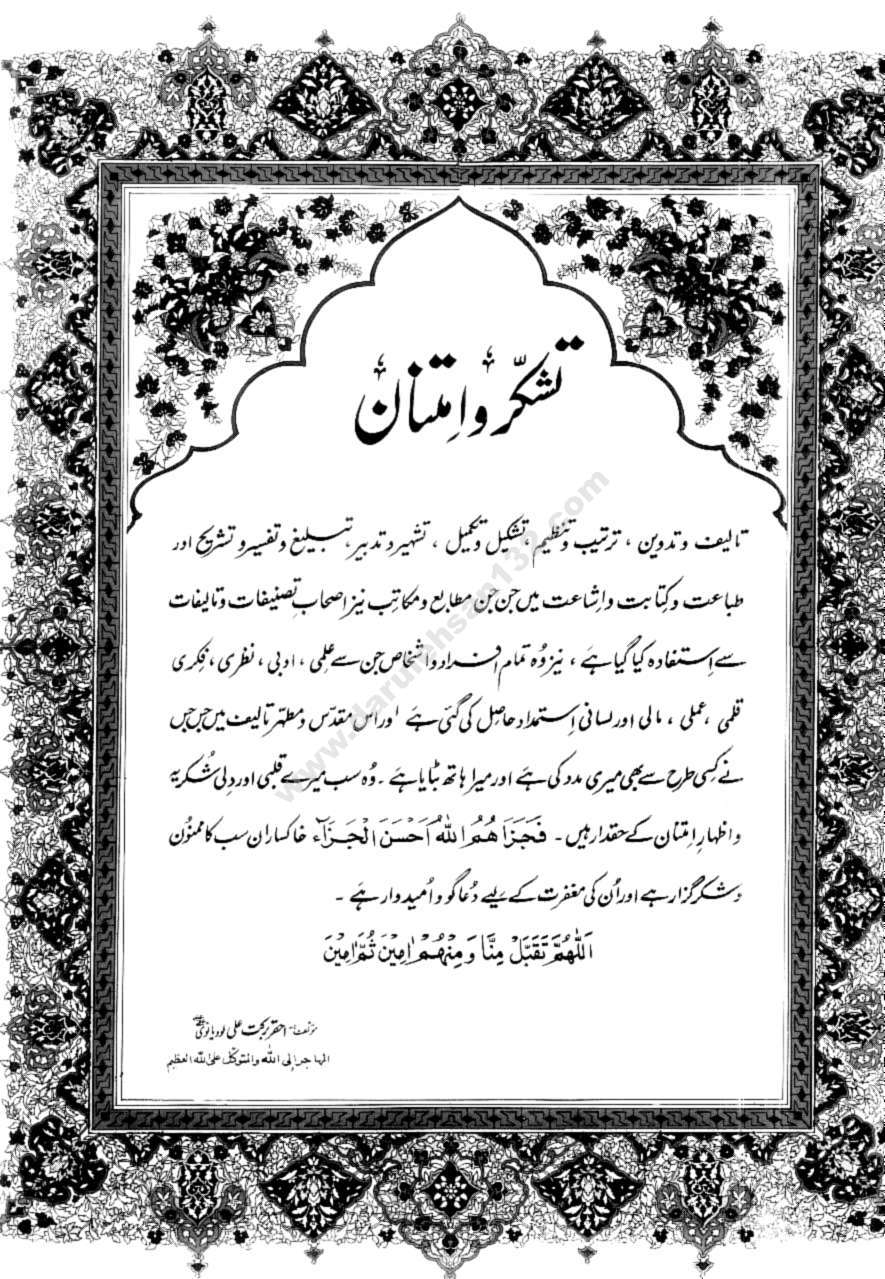 تشکّر و اِمتنان
تالیف و تدوین ، ترتیب و تنظیم ، تشکیل و تکمیل ، تشہیر و تدبیر، تبلیغ و تفسیر و تشریح اور
طباعت و کتابت و اِشاعت میں جن جن مطابع و مکاتِب نیز اصحابِ تصنیفات و تالیفات
سے اِستفادہ کیا گیا ہے ، نیز وُہ تمام افراد و اشخاص جن سے عِلمی ، ادبی ، نظری ، فِکری
قلمی ، عملی ، مالی اور لسانی اِستمداد حاصل کی گئی ہے اور اس مقدّس و مطہّر تالیف میں جس جس
نے کِسی طرح سے بھی میری مدد کی ہے اور میرا ہاتھ بٹایا ہے ۔ وُہ سب میرے قلبی اور دِلی شُکریہ
و اظہارِ اِمتنان کے حقدار ہیں ۔ فَجَزَاهُمُ اللّٰهُ اَحْسَنَ الْجَزَآء خاکسار ان سب کا ممنُون
و شکر گزار ہے اور اُن کی مغفرت کے لیے دُعا گو و اُمیدوار ہَے ۔
اَللّٰهُمَّ تَقَبَّلْ مِنَّا وَ مِنْهُمْ اٰمِيْنَ ثُمَّ اٰمِيْنَ
احقر برکت علی لودیانوی
المهاجر الی الله والمتوکل علی الله العظیم